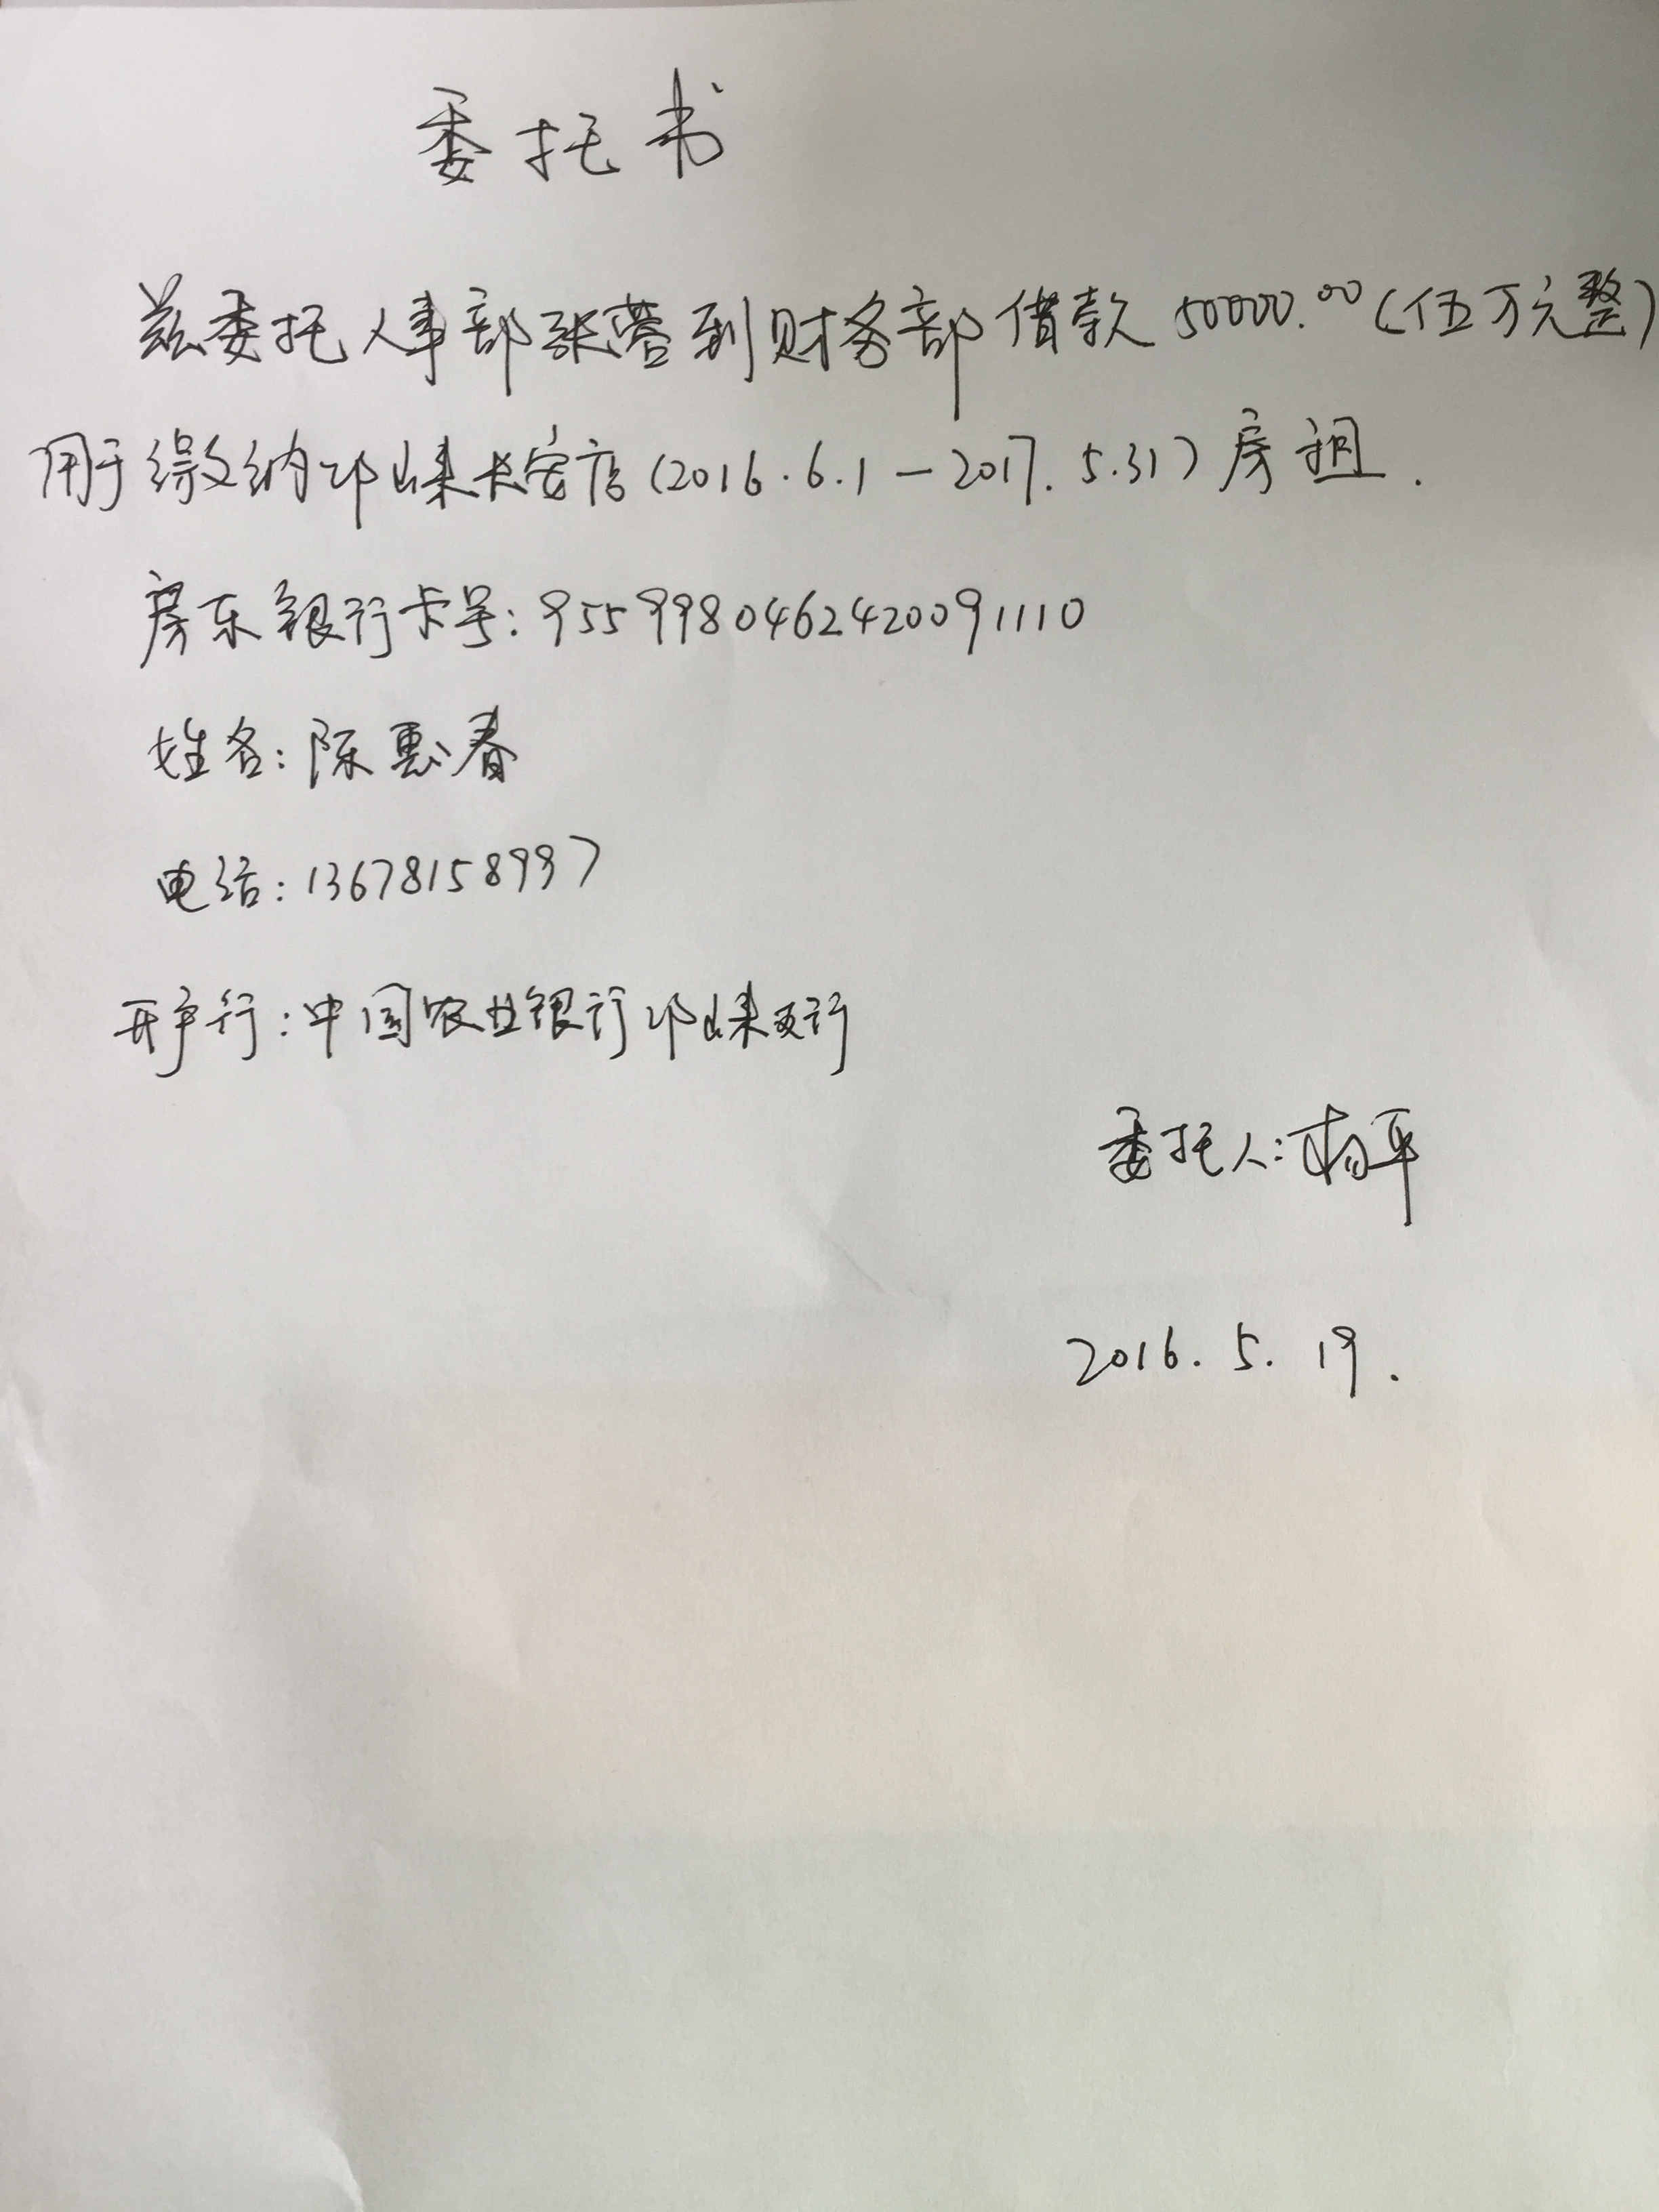 委托书
兹委托人事部张蓉到财务部借款50000.00(伍万元整)
用于缴纳邛崃长安店(2016.6.1－2017.5.31)房租.
房东银行卡号:9559980462420091110
姓名:陈惠春
电话:13678158997
开户行:中国农业银行邛崃支行
委托人:杨平
2016.5.19.